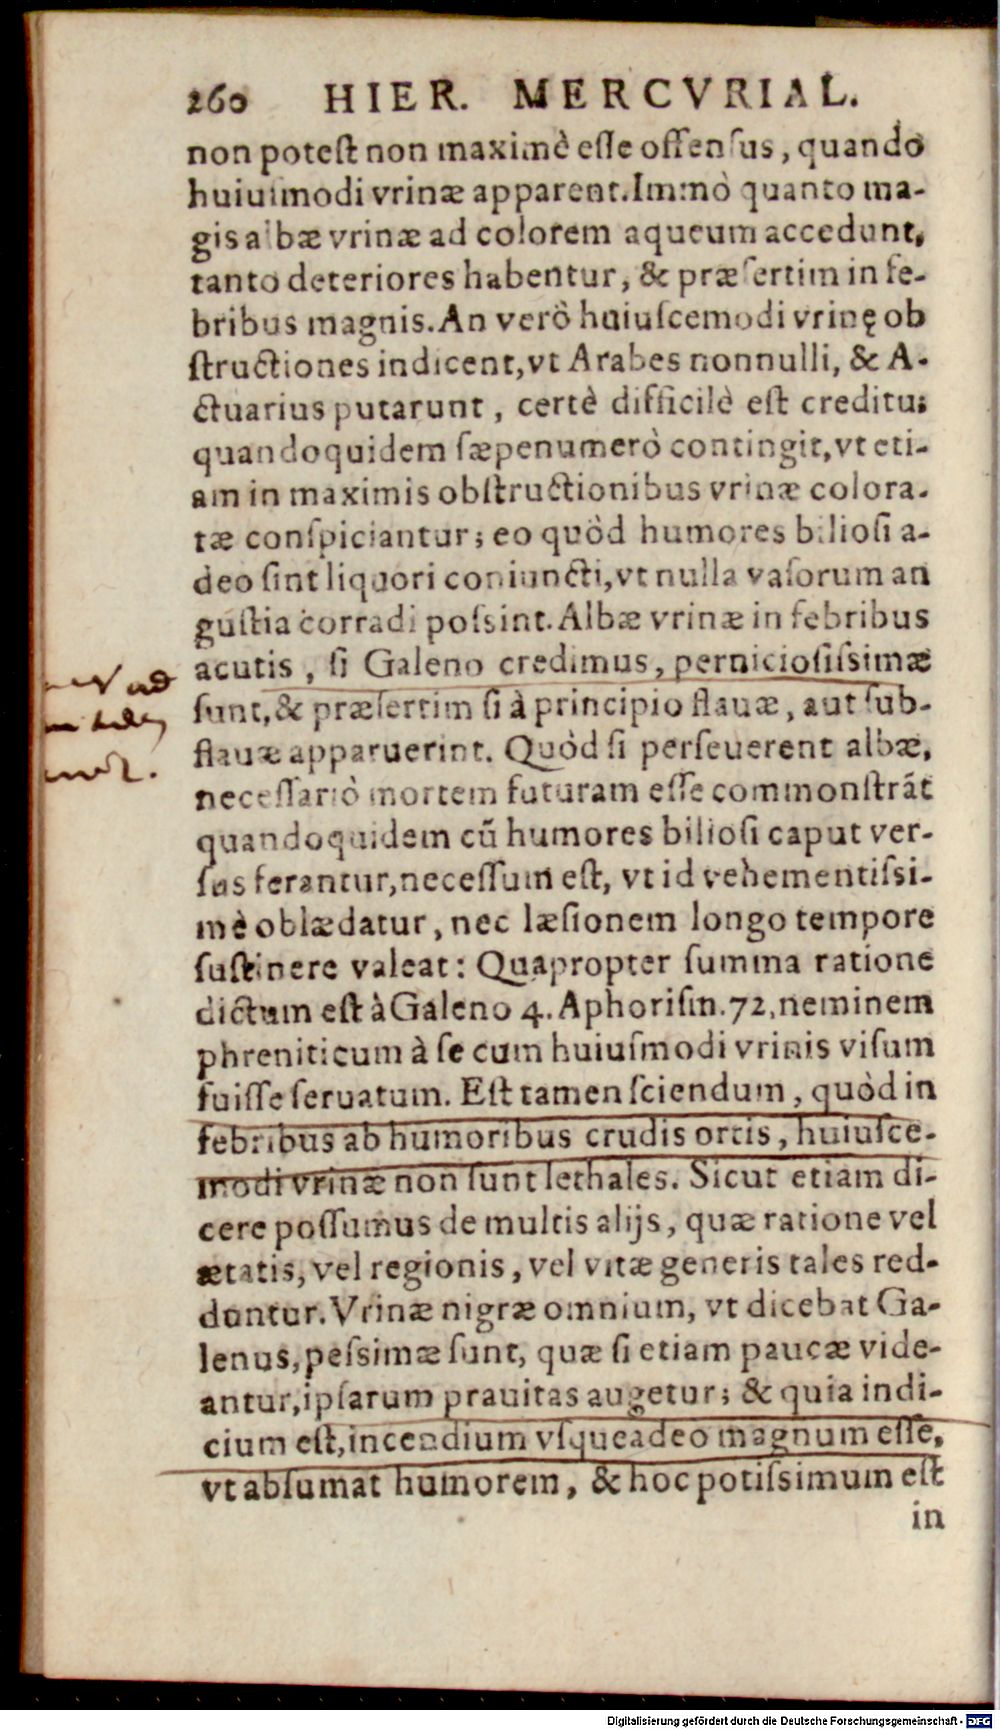 260 HIER. MERCVRIAL.
non potest non maximè esse offensus, quando
huiusmodi vrinæ apparent. Immò quanto ma-
gis albæ vrinæ ad colorem aqueum accedunt,
tanto deteriores habentur, & præſertim in fe-
bribus magnis. An verò huiuſcemodi vrinę ob
ſtructiones indicent, vt Arabes nonnulli, & A-
ctuarius putarunt, certè difficilè eſt creditu;
quandoquidem ſæpenumerò contingit, vt eti-
am in maximis obſtructionibus vrinæ colora-
tæ conſpiciantur; eo quòd humores bilioſi a-
deo ſint liquori coniuncti, vt nulla vaſorum an
guſtia corradi poſsint. Albæ vrinæ in febribus
acutis, ſi Galeno credimus, pernicioſiſsimæ
ſunt, & præſertim ſi à principio flauæ, aut ſub-
flauæ apparuerint. Quòd ſi perſeuerent albæ,
neceſſariò mortem futuram eſſe commonſtrāt
quandoquidem cū humores bilioſi caput ver-
ſus ferantur, neceſſum eſt, vt id vehementiſsi-
mè oblædatur, nec læſionem longo tempore
ſuſtinere valeat: Quapropter ſumma ratione
dictum eſt à Galeno 4. Aphoriſm. 72, neminem
phreniticum à ſe cum huiuſmodi vrinis viſum
fuiſſe ſeruatum. Eſt tamen ſciendum, quòd in
febribus ab humoribus crudis ortis, huiuſce-
modi vrinæ non ſunt lethales. Sicut etiam di-
cere poſſumus de multis alijs, quæ ratione vel
ætatis, vel regionis, vel vitæ generis tales red-
duntur. Vrinæ nigræ omnium, vt dicebat Ga-
lenus, peſsimæ ſunt, quæ ſi etiam paucæ vide-
antur, ipſarum prauitas augetur; & quia indi-
cium eſt, incendium vſqueadeo magnum eſſe,
vt abſumat humorem, & hoc potiſsimum eſt
in
ad
Digitalisierung gefördert durch die Deutsche Forschungsgemeinschaft - DFG